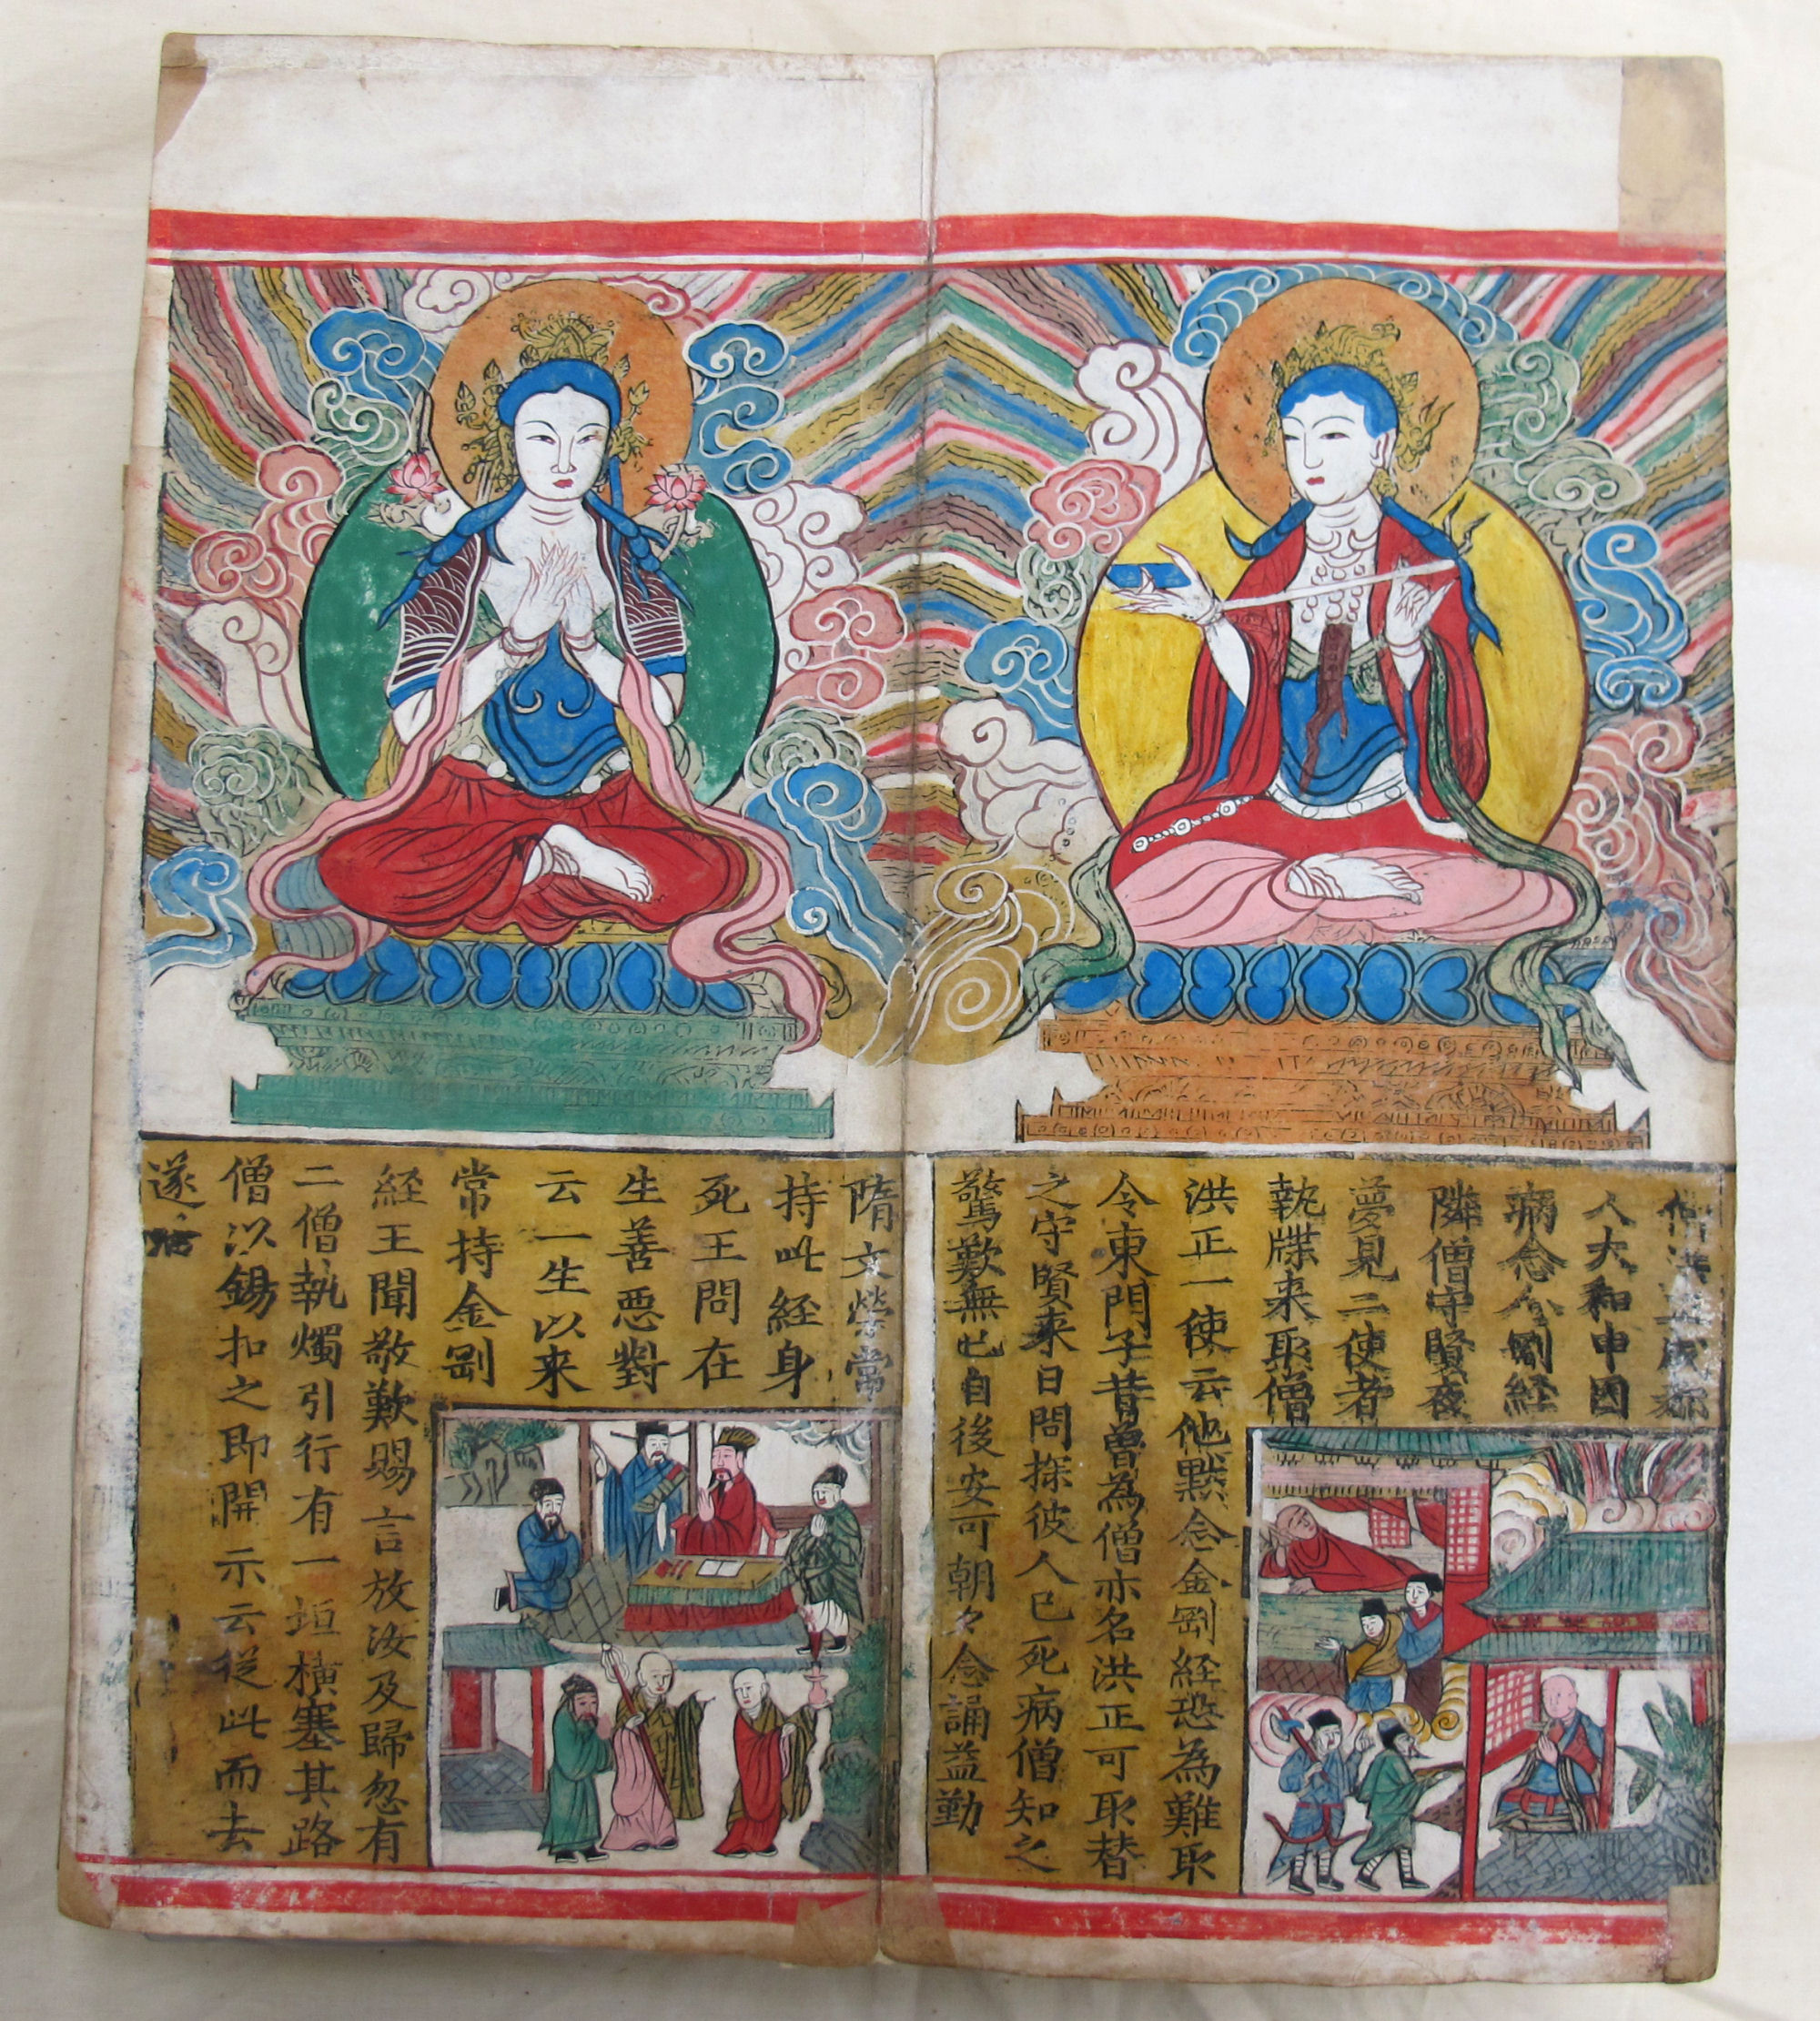 僧洪正成都
人大和中因
病念金剛経
隣僧守賢夜
夢見二使者
執牒来取僧
洪正一使云他黙念金剛経恐為難取
令東門子昔曽為僧亦名洪正可取替
之守賢来日問探彼人已死病僧知之
驚歎無已自後安可朝々念誦益勤
隋文榮當
持此経身
死王問在
生善悪對
云一生以来
常持金剛
経王聞敬歎賜言放汝及歸忽有
二僧執燭引行有一垣橫塞其路
僧以錫扣之即開示云従此而去
遂